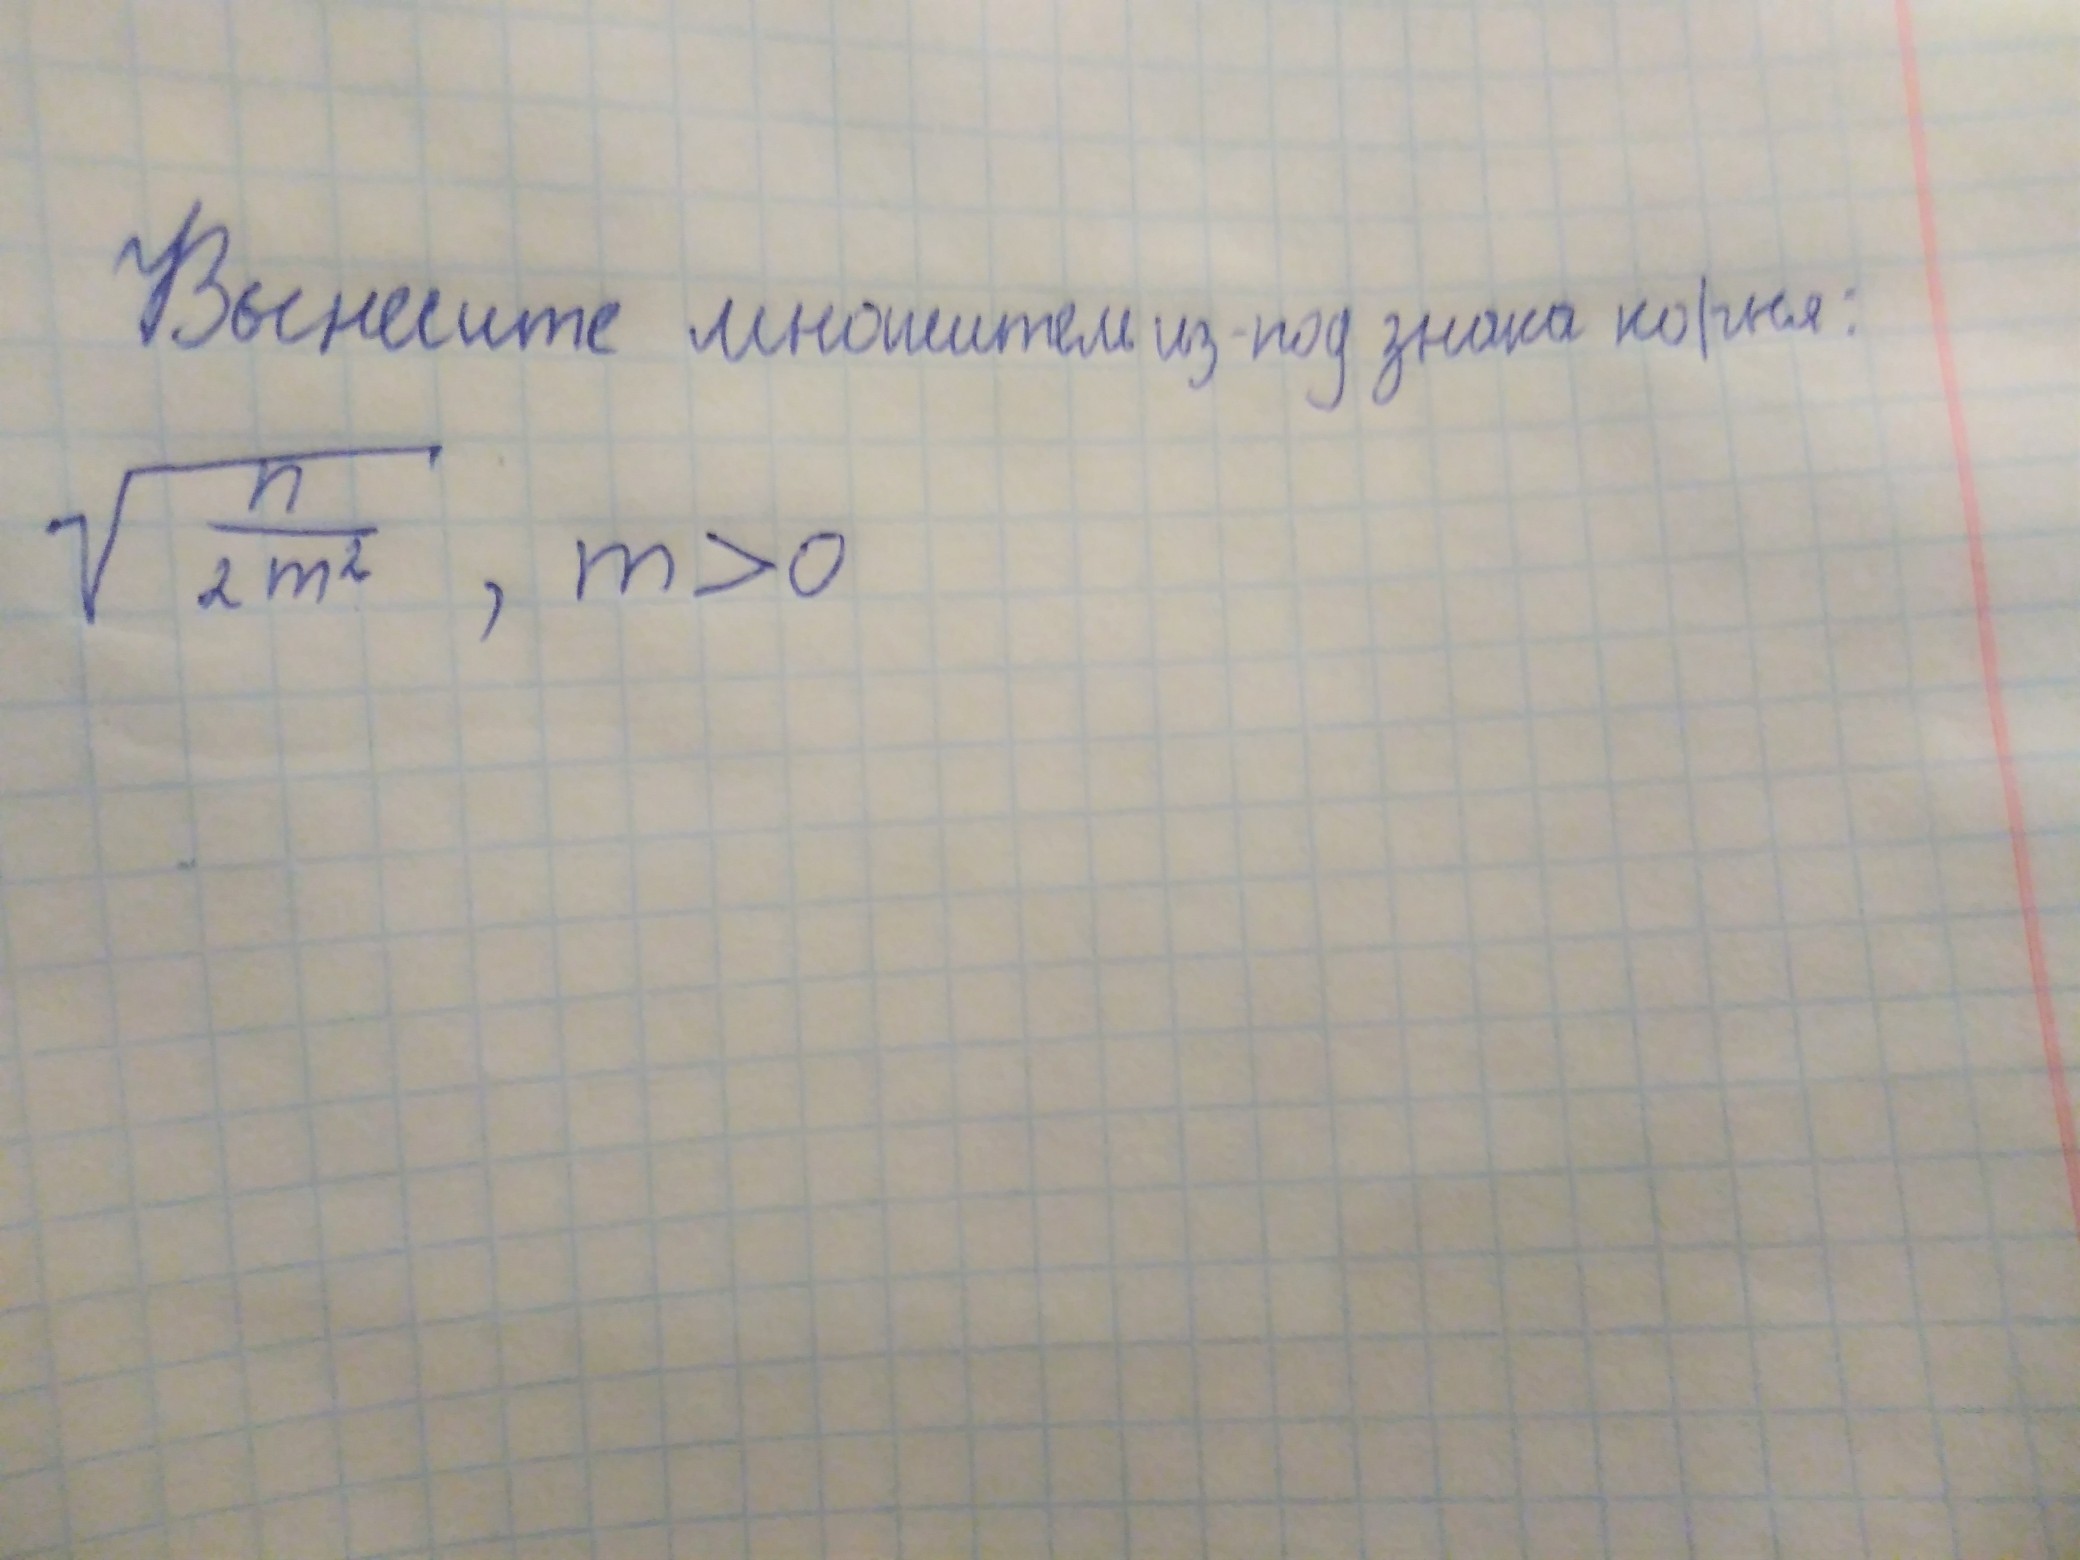 Вынесите множитель из-под знака корня:
√(n/(2m²)), m>0